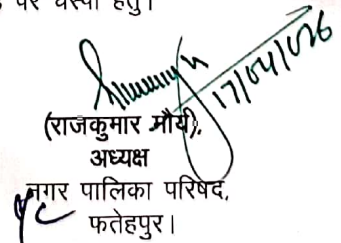 पर चस्पा हेतु।
17/04/026
(राजकुमार मौर्य),
अध्यक्ष
नगर पालिका परिषद,
फतेहपुर।